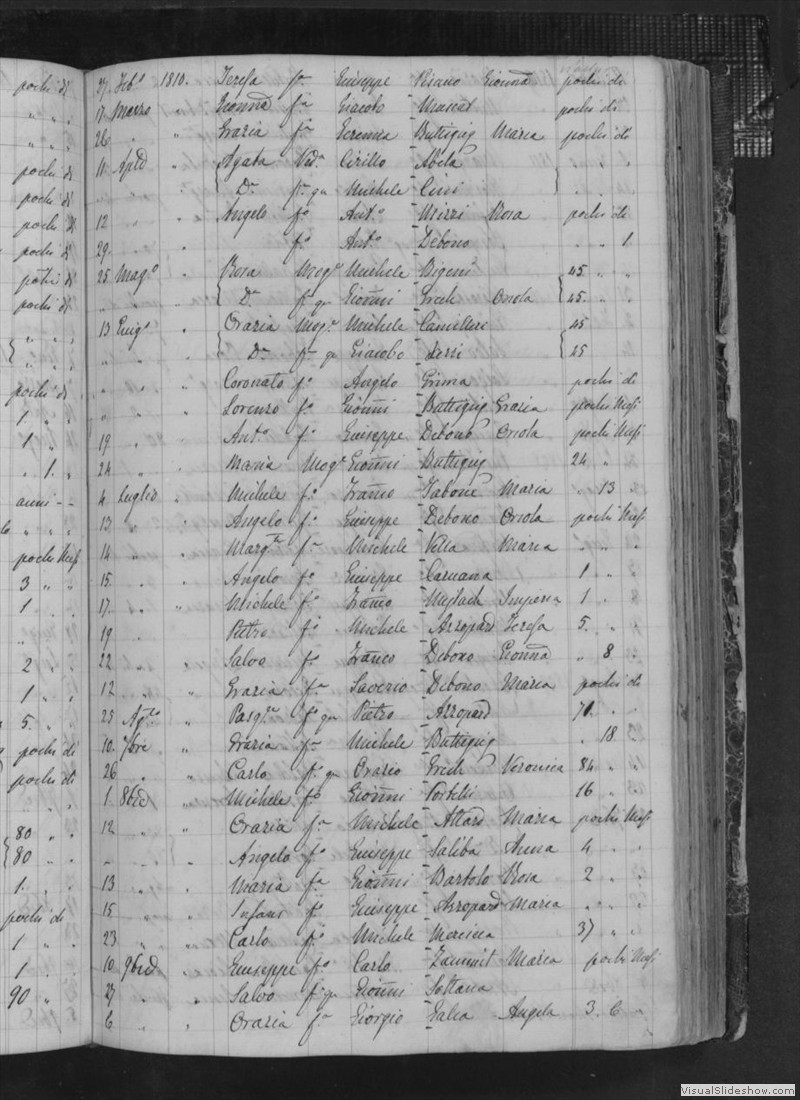 pochi di
pochi di
pochi di
pochi di
pochi di
pochi di
pochi di
1
1
1
anni
pochi Mesi
3
1
2
1
5
pochi di
pochi di
80
80
1
pochi di
1
1
90
27 Feb.o 1810. Teresa f.a Giuseppe Pisano Gionna pochi di
17 Marzo " Gionna f.a Giacobo Muscat pochi di
26 " " Grazia f.a Buttigieg Maria pochi di
11 " Agata Ved.a Cirillo Abela
D.a f.a qu Michele Cini
12 " " Angelo f.o Ant.o Mizzi Rosa pochi di
29 " f.o Ant.o Debono " " 1
25 Mag.o " Rosa Mog.e Michele 45 " "
D.a f.a qu Gionni Grech Orsola 45 " "
13 Giug.o " Orazia Mog.e Michele Camilleri 45
D.a f.a qu Giacobo 25
" " " Coronato f.o Angelo Grima pochi di
" " " Lorenzo f.o Gionni Buttigieg Grazia pochi Mesi
19 " " Ant.o f.o Giuseppe Debono Orsola pochi Mesi
24 " " Maria Mog.e Gionni Buttigieg 24 "
4 Luglio " Michele f.o Franco Tabone Maria " 13 "
13 " " Angelo f.o Giuseppe Debono Orsola pochi Mesi
14 " " Marg.ta f.a Michele Vella Maria " " "
15 " " Angelo f.o Giuseppe Caruana 1 " "
17 " " Michele f.o Franco Mifsud Imperia 1 " "
19 " Pietro f.o Michele Azzopard Teresa 5 " "
22 " " Salvo f.o Franco Debono Gionna " 8 "
12 " " Grazia f.a Saverio Debono Maria pochi di
25 Ag.to " Pasq.a f.a qu Pietro Azzopard 71 " "
10 7bre " Grazia f.a Michele Buttigieg " 18 "
26 " " Carlo f.o qu Orazio Grech Veronica 84 " "
1 8bre " Michele f.o Gionni Portelli 16 " "
12 " " Orazia f.a Michele Attard Maria pochi Mesi
" " " Angelo f.o Giuseppe Saliba Anna 4 " "
13 " " Maria f.a Gionni Bartolo Rosa 2 " "
15 " " Infans f.o Giuseppe Azzopard Maria " " "
23 " " Carlo f.o Michele Mercieca 37 " "
10 9bre " Giuseppe f.o Carlo Zammit Maria pochi Mesi
27 " " Salvo f.o qu Gionni Soltana
6 " " Orazia f.a Giorgio Galea Angela 3 6 "
VisualSlideshow.com